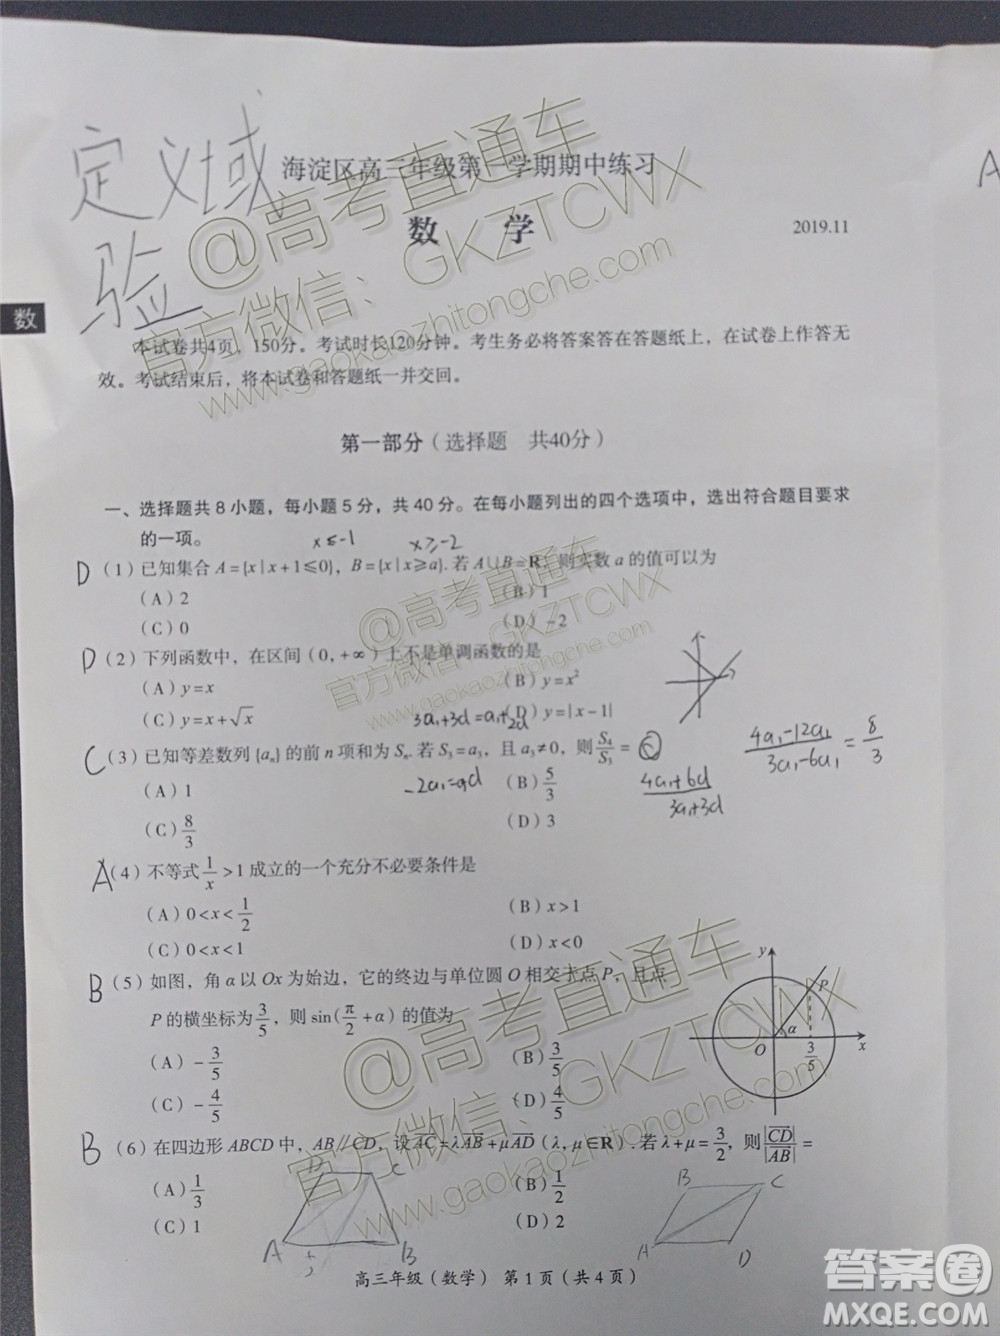 定义域
验
A
海淀区高三年级第一学期期中练习
数 学
2019.11
数
本试卷共4页，150分。考试时长120分钟。考生务必将答案答在答题纸上，在试卷上作答无
效。考试结束后，将本试卷和答题纸一并交回。
第一部分（选择题 共40分）
一、选择题共8小题，每小题5分，共40分。在每小题列出的四个选项中，选出符合题目要求
的一项。
x≤-1 x≥-2
D (1) 已知集合 A={x|x+1≤0}，B={x|x≥a}. 若 A∪B=R，则实数 a 的值可以为
(A) 2 (B) 1
(C) 0 (D) -2
D (2) 下列函数中，在区间(0,+∞)上不是单调函数的是
(A) y=x (B) y=x²
(C) y=x+√x (D) y=|x-1|
3a₁+3d=a₁+2d
C (3) 已知等差数列{aₙ}的前 n 项和为 Sₙ. 若 S₃=a₃，且 a₃≠0，则 S₄/S₃ =
(A) 1 (B) 5/3
(C) 8/3 (D) 3
-2a₁=d
(4a₁+6d)/(3a₁+3d)
(4a₁-12a₁)/(3a₁-6a₁) = 8/3
A (4) 不等式 1/x >1 成立的一个充分不必要条件是
(A) 0<x<1/2 (B) x>1
(C) 0<x<1 (D) x<0
B (5) 如图，角 α 以 Ox 为始边，它的终边与单位圆 O 相交于点 P，且点
P 的横坐标为 3/5，则 sin(π/2+α) 的值为
(A) -3/5 (B) 3/5
(C) -4/5 (D) 4/5
y
P
α
O 3/5 x
B (6) 在四边形 ABCD 中，AB∥CD，设 AC=λAB+μAD (λ,μ∈R). 若 λ+μ=3/2，则 |CD|/|AB| =
(A) 1/3 (B) 1/2
(C) 1 (D) 2
D C
A B
B C
A D
高三年级（数学） 第1页（共4页）
@高考直通车
官方微信：GKZTCWX
www.gaokaozhitongche.com
@高考直通车
官方微信：GKZTCWX
www.gaokaozhitongche.com
@高考直通车
官方微信：GKZTCWX
www.gaokaozhitongche.com
答案圈
MXQE.COM